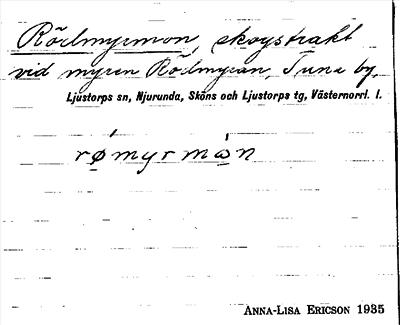 Rödmyrmon, skogstrakt
vid myren Rödmyran, Tuna by,
Ljustorps sn, Njurunda, Sköns och Ljustorps tg, Västernorrl. l.
rǿmyrmɷ̀n
ANNA-LISA ERICSON 1935